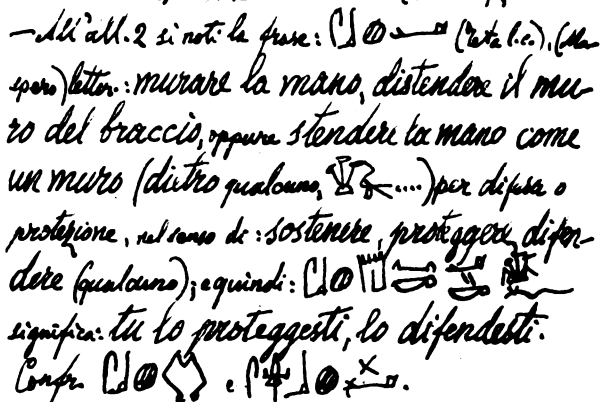 — All'all. 2 si noti la frase: (Rosta l.c.), (Ma-
spero) letter.: murare la mano, distendere il mu-
ro del braccio, oppure stendere la mano come
un muro (dietro qualcuno, ....) per difesa o
protezione, nel senso di: sostenere, proteggere, difen-
dere (qualcuno); e quindi:
significa: tu lo proteggesti, lo difendesti.
Confr. e .